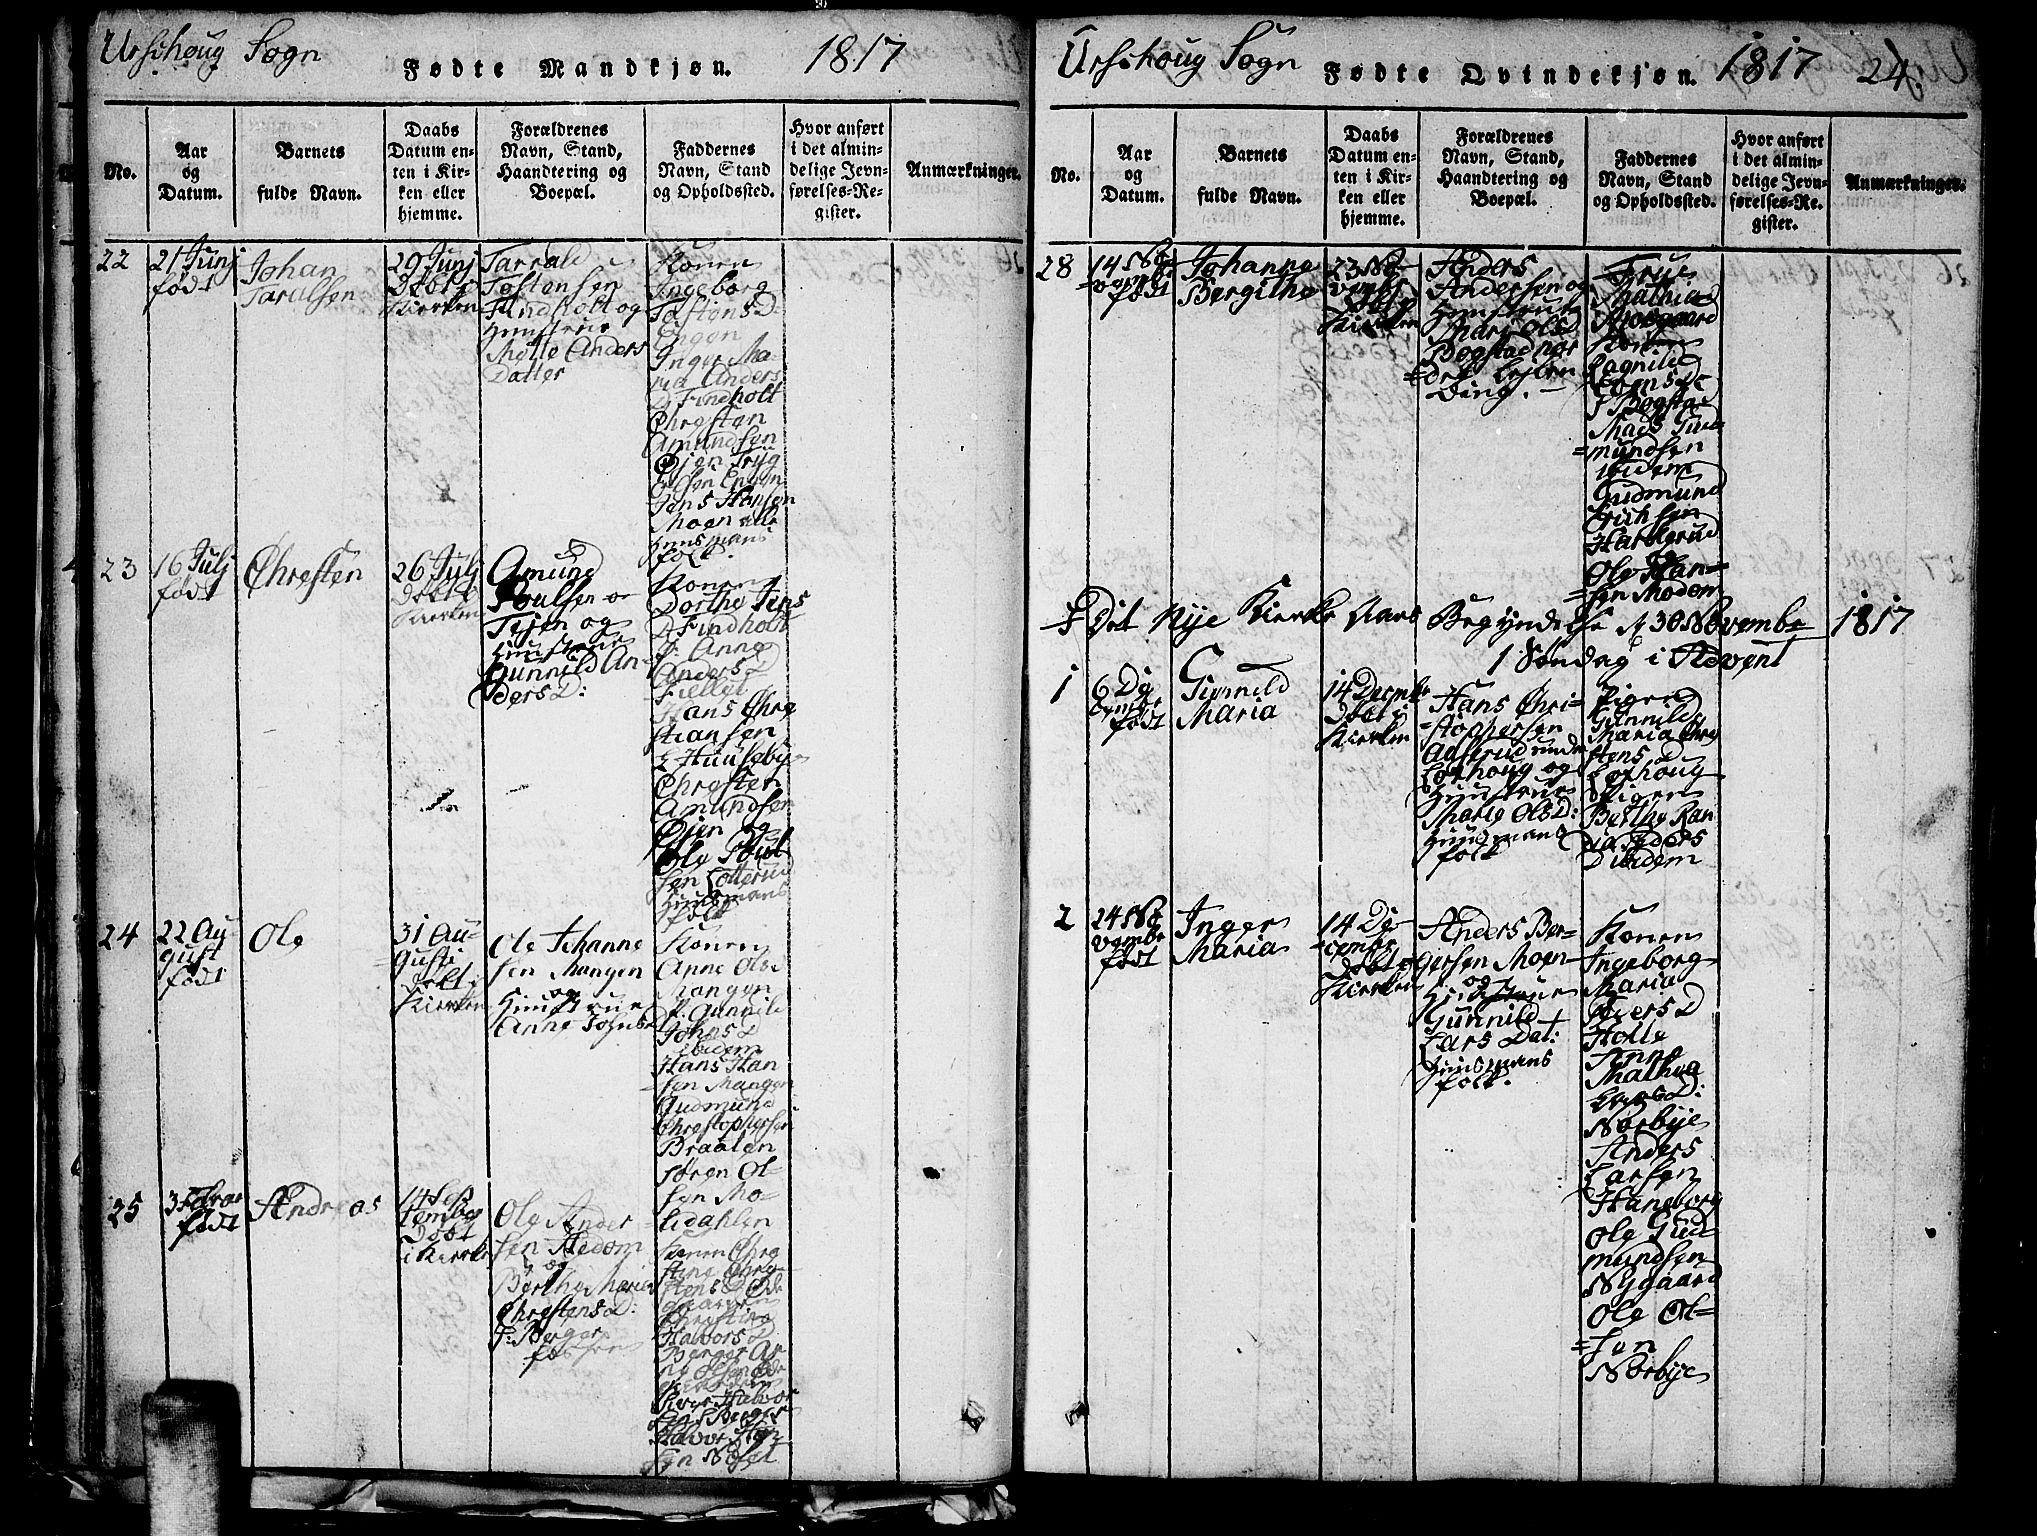 Urschoug Sogn
Fødte Mandkjøn.
1817
No.
Aar
og
Datum.
Barnets
fulde Navn.
Daabs
Datum en-
ten i Kir-
ken eller
hjemme.
Forældrenes
Navn, Stand,
Haandtering og
Boepæl.
Faddernes
Navn, Stand
og Opholdssted.
Hvor anført
i det almin-
delige Jevn-
førelses-Re-
gister.
Anmærkninger.
22
21 Junj
født
Johan
Taralsen
29 Junj
Døbt i
Kierken
Tarrald
Tostensen
Findholt og
Hunstrue
Andes
Datter
Konen
Ingeborg
D:
Engen
Inger Ma-
ria Anders
D Findholt
Chresten
Amundsen
Øjen
Engen
Jens Hansen
Moen alle
Huusmans
folk.
23
16 Julj
født
Chresten
26 Julj
Døbt i
Kierken
Amund
Poulsen
og
Gunnild An-
ders D:
Konen
Dorthe Jens
D Findholt
P: Anne
Anders D
Hans Chre
stiansen
Huuseby
Chresten
Amundsen
Øjen og
Ole Poul
sen
Huusmans
folk
24
22 Au
gust
født
Ole
31 Au-
gusti
Døbt i
Kierken
Ole Johanne
sen Mangen
og
Hunstrue
Anne
Konen
Anne Ols D
Mangen
P: Gunnild
Johns D
ibidem
Hans Han
=sen Mangen
Gudmund
Chrestophersen
Braaten
Søren Ol-
sen Mo-
lidahlen
25
født
Andreas
14 Sep
tember
Døbt
i Kierke
Ole Ander
sen
og
Berthe Maria
Chrestens D:
P: Berger
Konen Chre
stine Chre-
stens D
Halvors D
Berger
Halvor
sen
Urschoug Sogn
Fødte Qvindekjøn.
1817
24.
No.
Aar
og
Datum.
Barnets
fulde Navn.
Daabs
Datum en-
ten i Kir-
ken eller
hjemme.
Forældrenes
Navn, Stand,
Haandtering og
Boepæl.
Faddernes
Navn, Stand
og Opholdssted.
Hvor anført
i det almin-
delige Jevn-
førelses-Re-
gister.
Anmærkninger.
28
14 No
=vembr
født
Johanne
Bergithe
23 No
vembr
Døbt i
Kierken
Anders
Andersen og
Hunstrue
Mari Ols D
Bogstad nor
=dre
Ding.
Frue
Mathia
Konen
Ragnild
Bogstad
Mads Gud
=mundsen
ibidem
Gudmund
Erichsen
Harkerud
Ole Han=
=sen Modom
Det Nye Kierke Aars Begyndelse d 30 Novembr 1817
1 Søndag i Advent
1
6 De
cembr
født
Gunnild
Maria
14 Decmbr
Døbt i
Kierken
Hans Chri-
=stophersen
under
og
Hunstrue
Marie Ols D:
Huusmans
folk
Pigen
Gunnild
Maria Chre
stens D
Pigen
Berthe Ran
D ibidem
2
24 No
vembr
født
Inger
Maria
14 De
=cembr
Døbt i
Kierken
Anders Ber-
gersen Moen
og
Hunstrue
Gunnild
Lars Dat:
Huusmans
folk.
Konen
Ingeborg
Maria
Holle
Anne
Mathea
Norbye
Anders
Larsen
Haneborg
Ole Gud
mundsen
Nygaard
Ole Ol=
=sen
Norbye